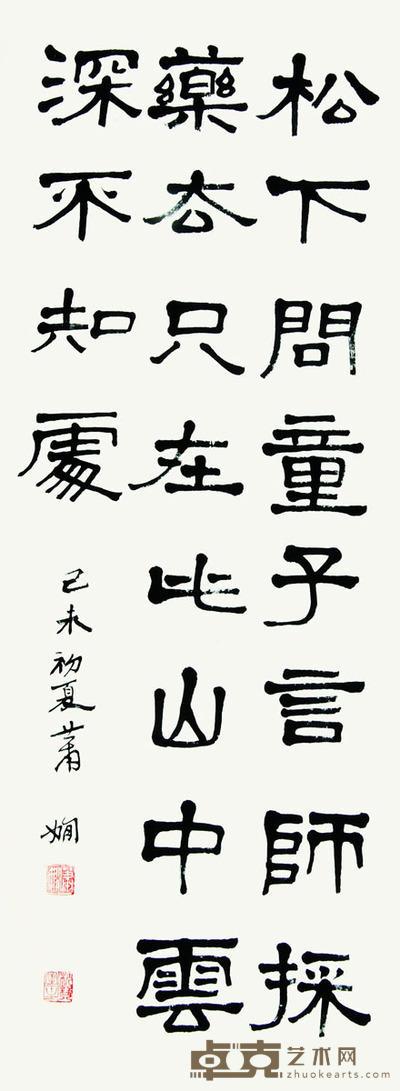 松下問童子言師採
藥去只在此山中雲
深不知處
己未初夏蕭嫻
卓克艺术网
zhuokearts.com